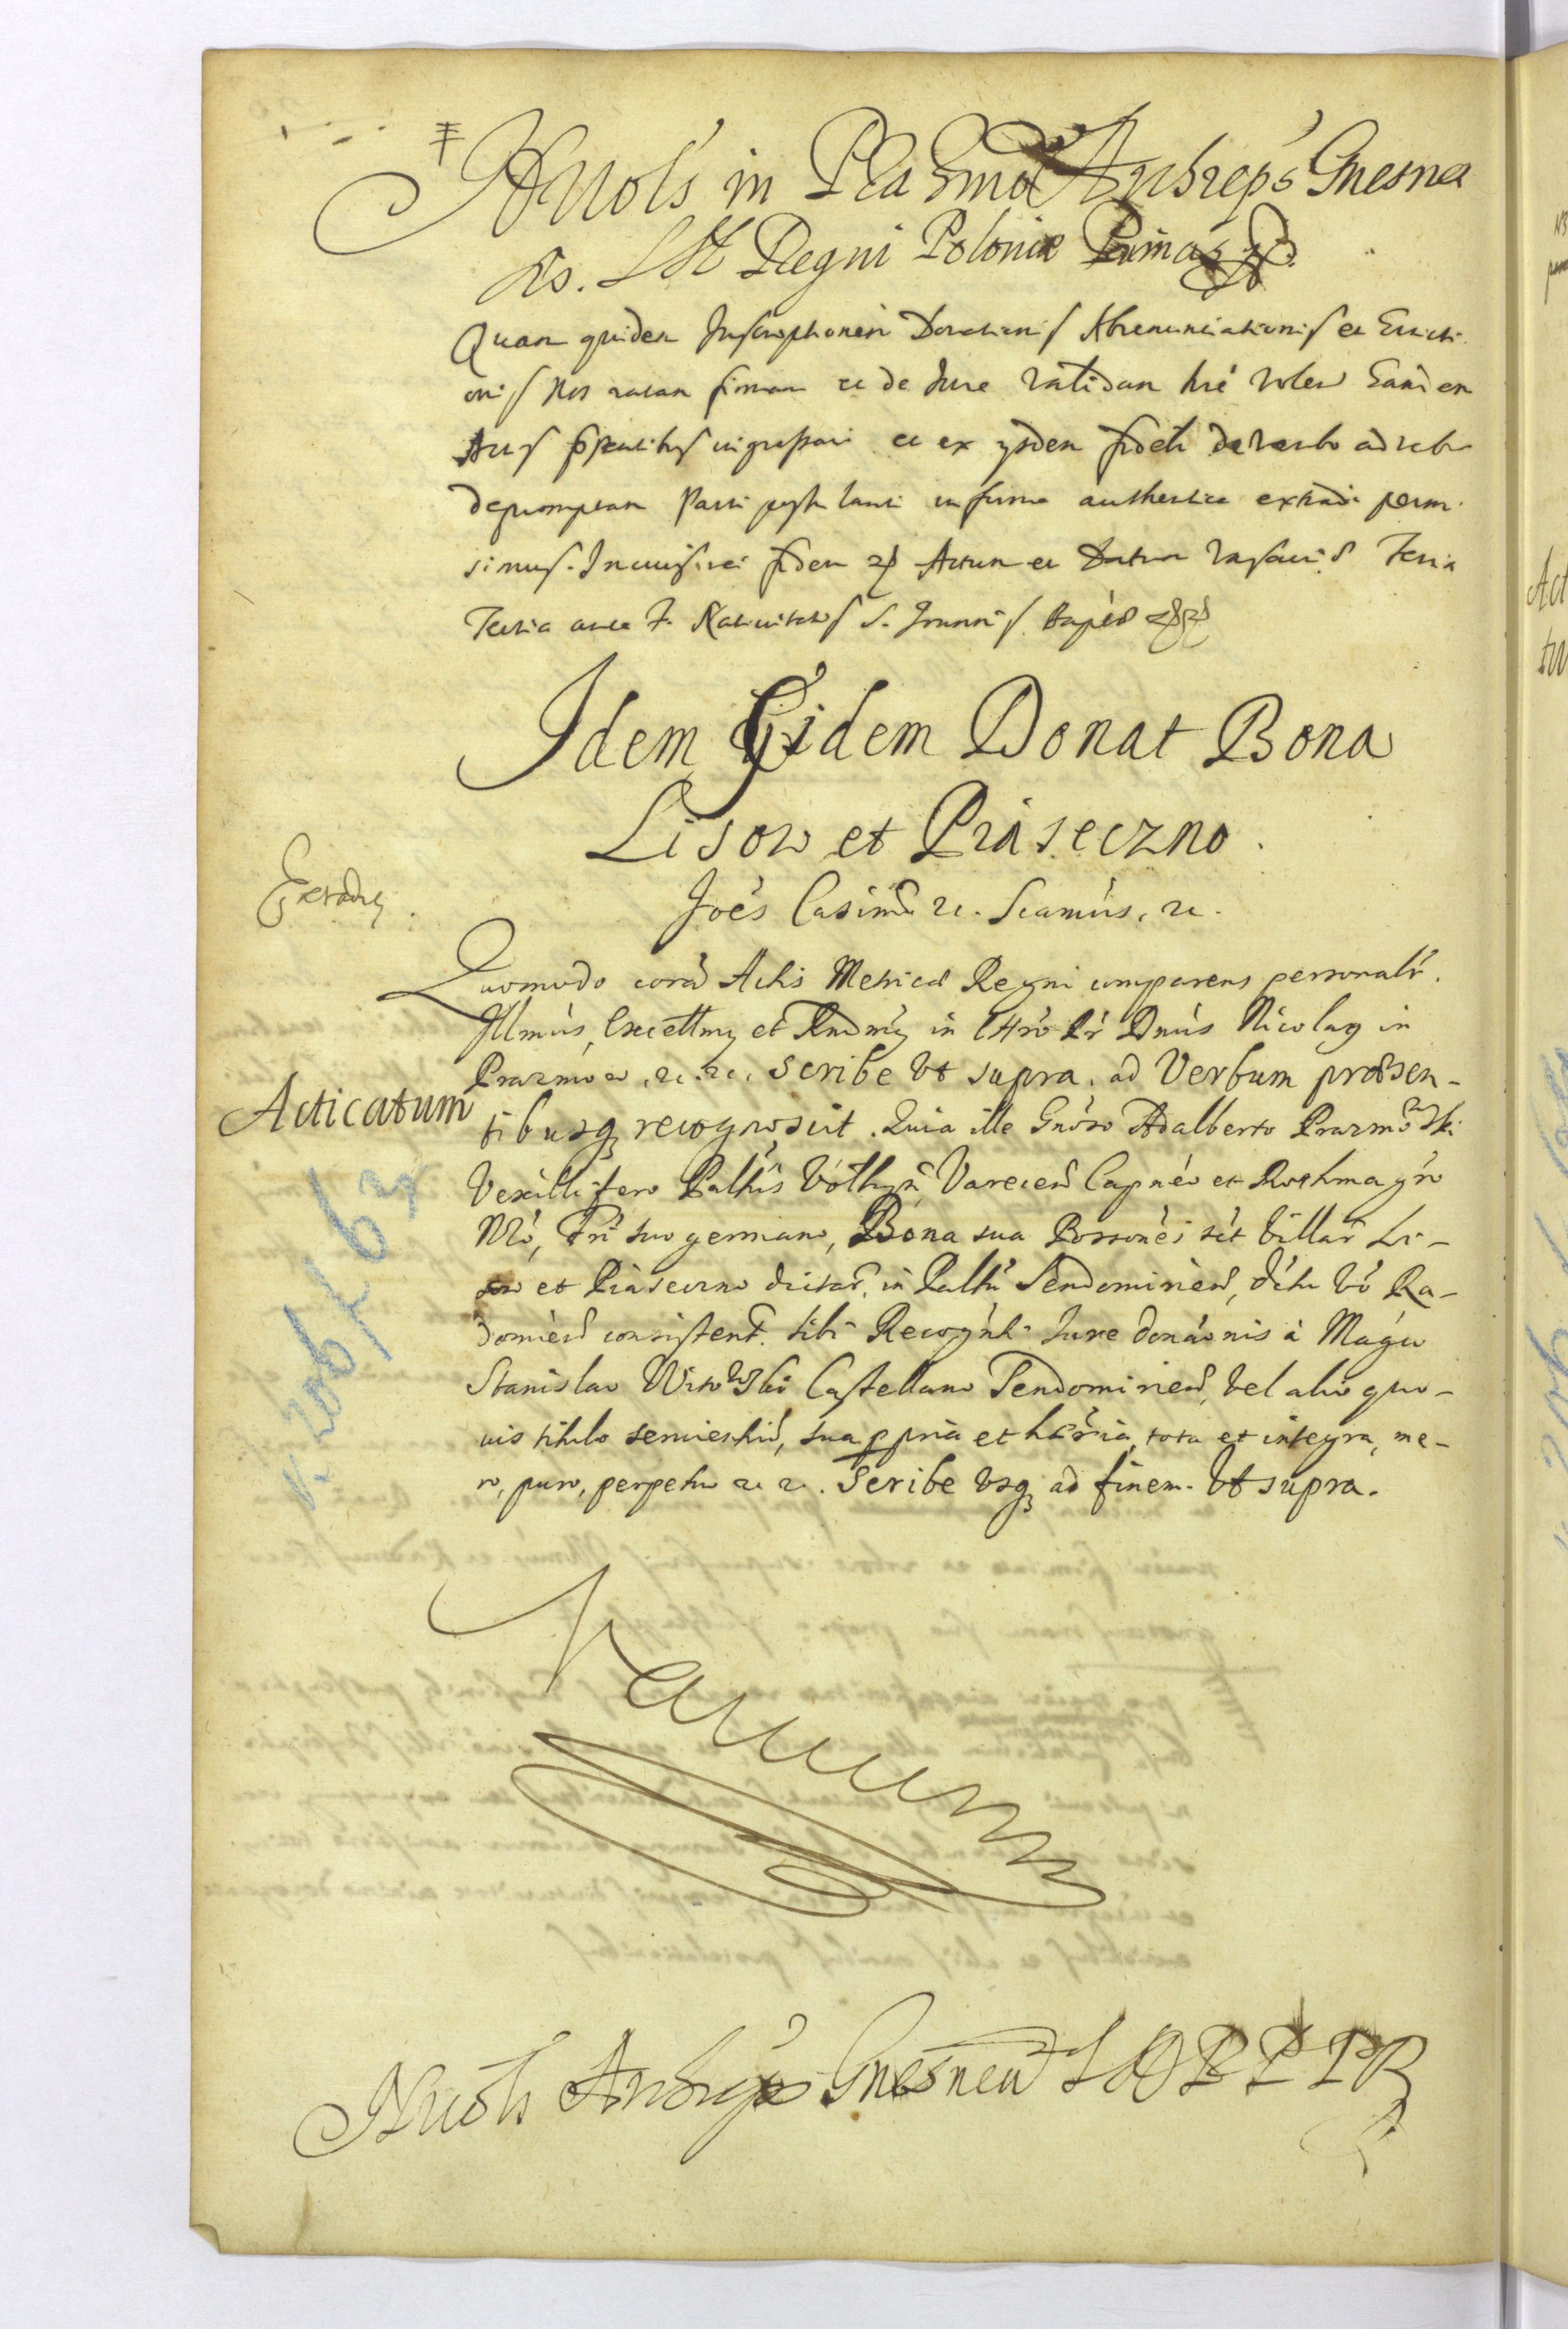 Nicols in Prazmow Archieps Gnesnen
Regni Poloniæ Primas
Quam quidem Inscriptionem Donationis Abrenunciationis et Evicti-
onis Nos ratam firmam et de Jure validam hrẽ volen Eandem
Actis pñtibus ingrossari et ex ijsdem fideli de verbo ad verbu
depromptam Parti postulanti in forma authentica extradi permi-
simus. In cuius rei fidem Actum et Datum Varsaviæ Feria
Tertia ante F. Nativitatis S. Joannis Bapte
Idem Eidem Donat Bona
Lisow et Piaseczno.
Joẽs Casim. etc. Scamus, etc.
Extradit.
Quomodo corã Actis Metricæ Regni comparens personalr.
Illmus, Excellmus et Rndmus in Chro Pr Dnus Nicolaus in
Prazmow, etc. etc. Scribe vt supra. ad Verbum præsen-
Acticatum
tibusq recognoscit. Quia ille Gnoso Adalberto Prazmowski
Vexillifero Palttus Volhyn Varecen Capneo et Rothmagro
Nro, Fri suo germano, Bona sua Possones sct villar Li-
sow et Piaseczno dictar, in Palttu Sendomirien, dctu vo Ra-
domien consistent. sibi Recognti Jure donaonis à Magco
Stanislao Witowski Castellano Sendomirien, vel alio quo-
vis titulo servient, sua ppria et hæria, tota et integra, me-
ro, puro, perpetuo etc etc. Scribe vsq ad finem. vt supra.
Nicols Archieps Gnesnen